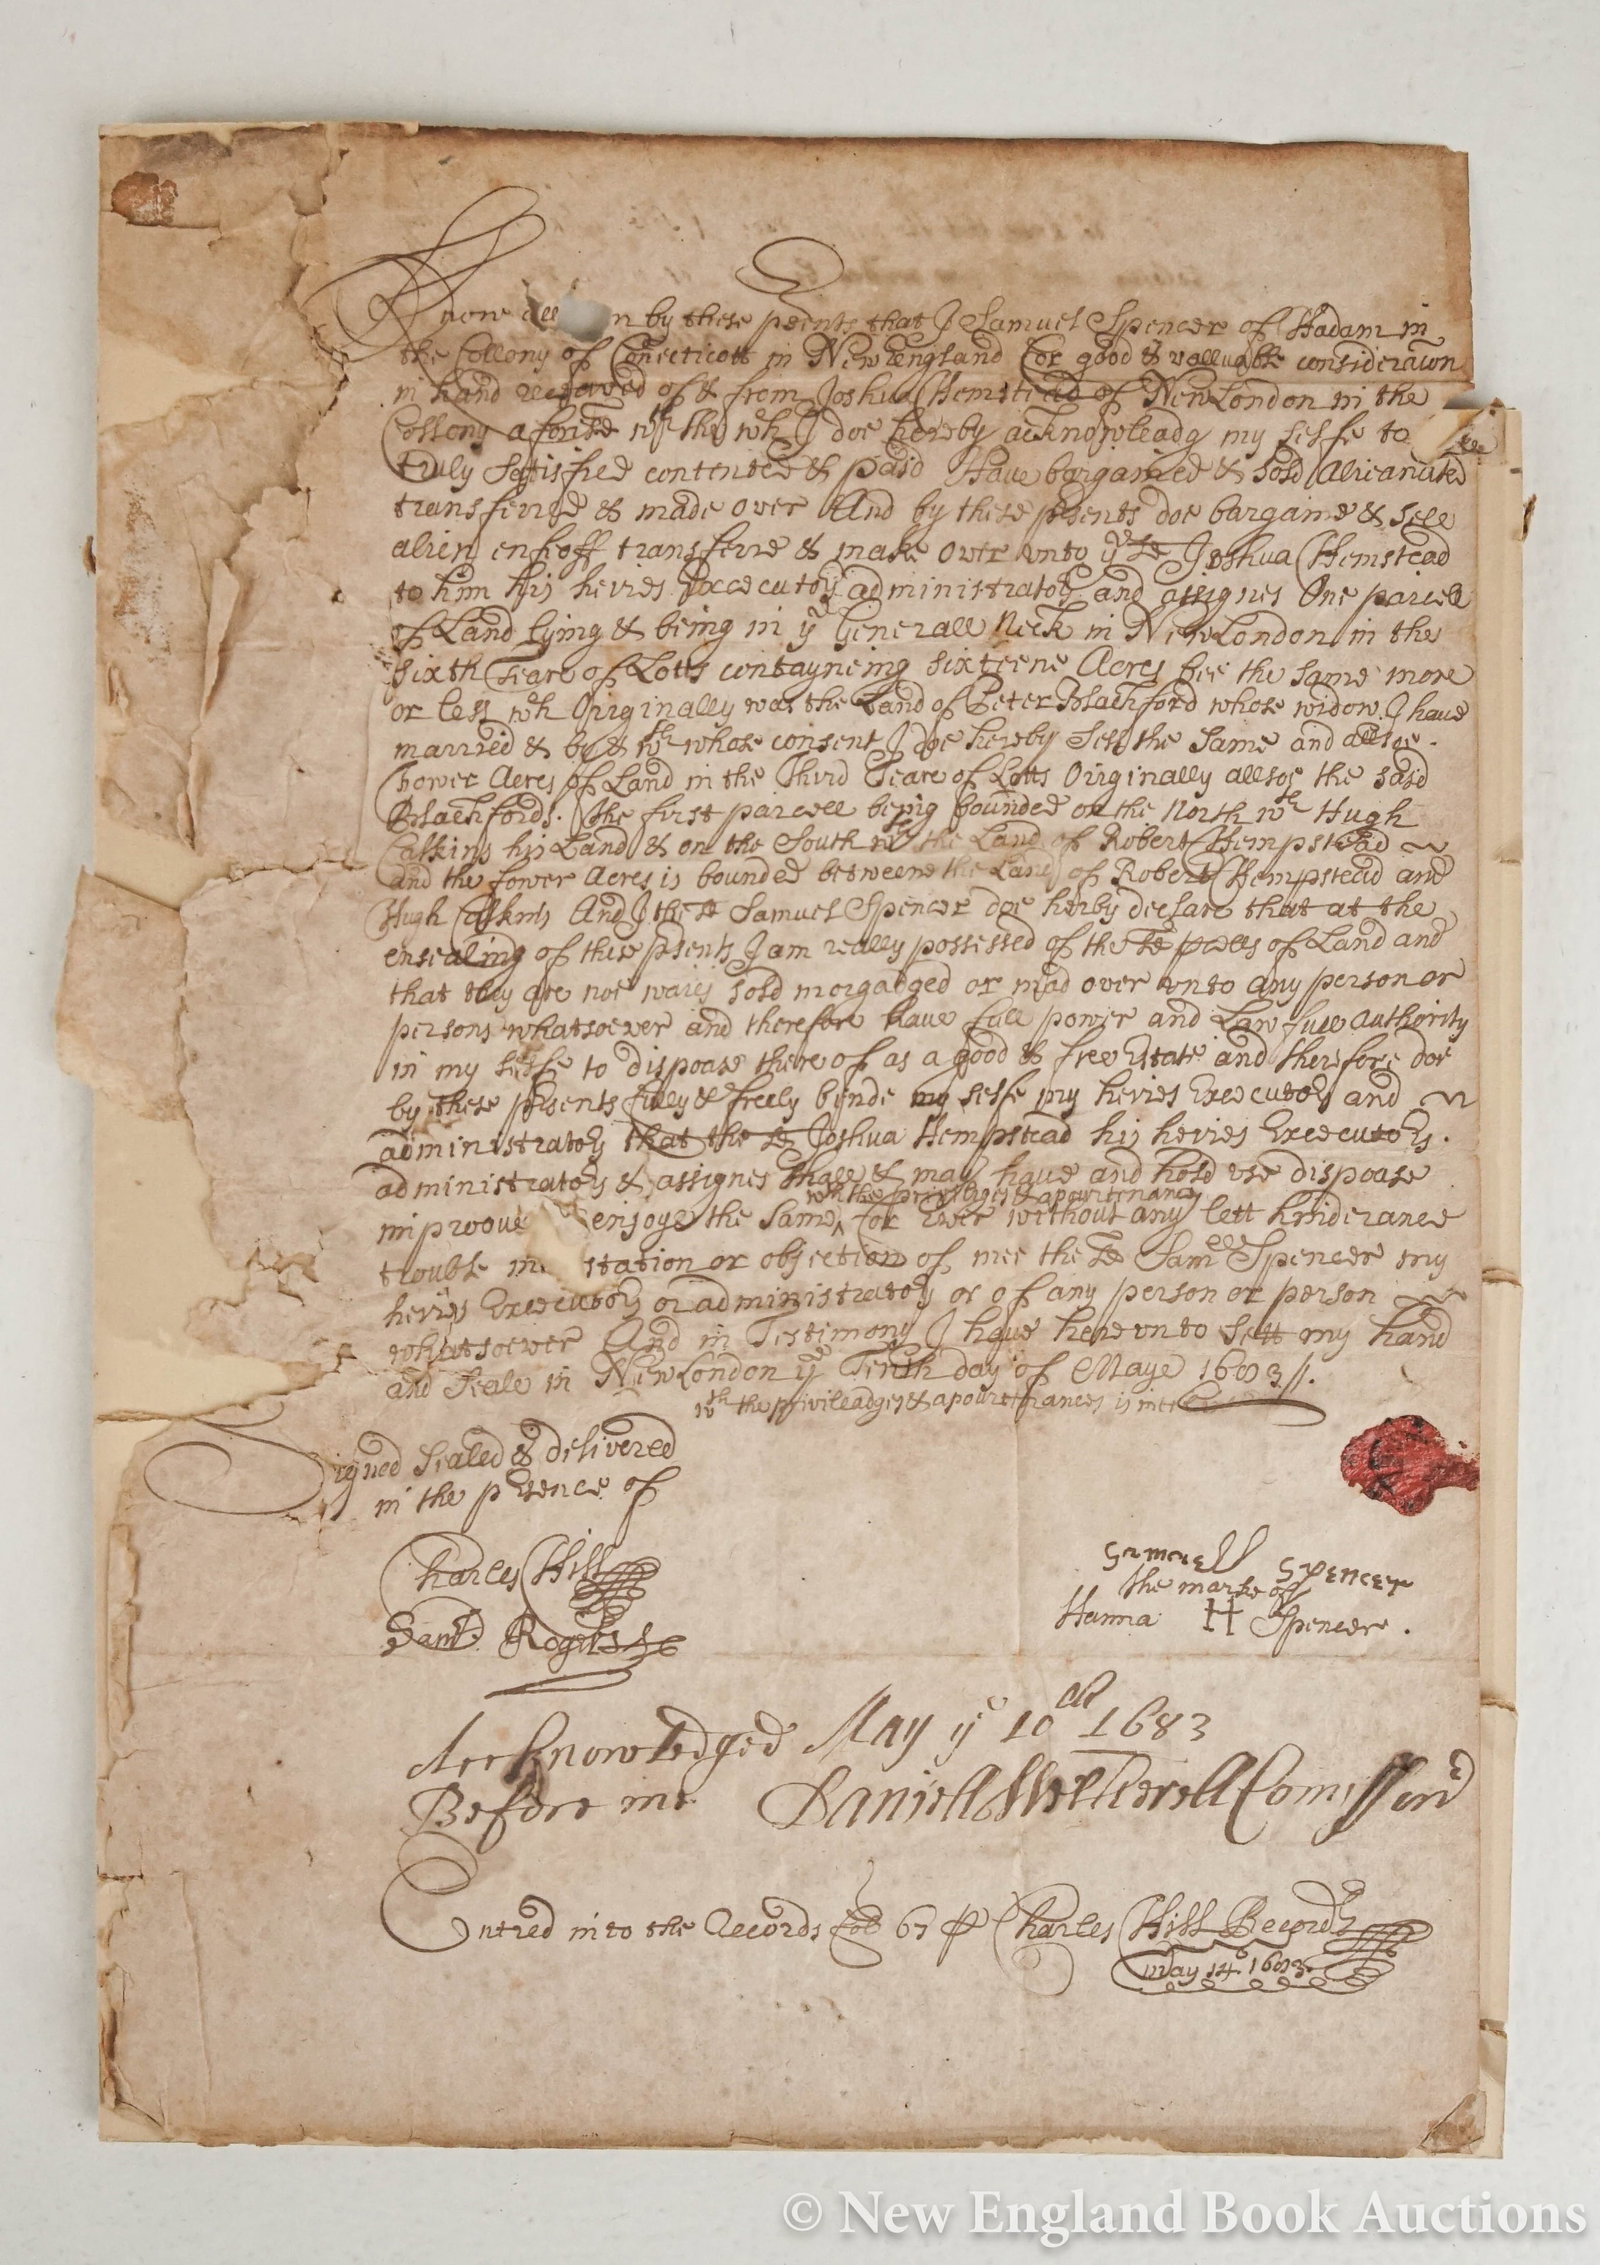 Know all n by these psents that I Samuel Spencer of Hadam in
the Collony of Conecticott in New England for good & valluable consideracon
in hand received of & from Joshua Hempstead of New London in the
Collony aforesd wth the wch I doe hereby acknowleadg my selfe to
truly Satisfied contented & paid Have bargained & Sold Alieanated
transferred & made over And by these psents doe bargaine & sell
alien enfeoff transferre & make over unto ye sd Joshua Hemstead
to him his heires Executors administrators and assignes One parcell
of Land lying & being in ye Generall Neck in New London in the
sixth Teare of Lotts contayneing sixteene Acres bee the same more
or less wch Oirginally was the Land of Peter Blachford whose widow I have
married & by & wth whose consent I doe hereby Sell the Same and allsoe
fower Acres of Land in the Third Teare of Lotts Oirginally allsoe the said
Blachfords. The first parcell being bounded on the North wth Hugh
Calkins his Land & on the South wth the Land of Robert Hempstead
and the fower Acres is bounded betweene the Land of Robert Hempstead and
Hugh Calkins And I the sd Samuel Spencer doe herby declare that at the
ensealing of these psents I am really possessed of the sd pcells of Land and
that they are noe waies sold morgadged or mad over unto any person or
persons whatsoever and therefore have full power and Lawfull authority
in my selfe to dispoase thereof as a good & free Estate and therefore doe
by these psents fully & freely binde my selfe my heires Executors and
administrators that the sd Joshua Hempstead his heires Executors
administrators & assignes shall & may have and hold use dispoase
wth the priviledges & apourtenances
improove enjoye the same ^ for Ever without any lett hinderance
trouble station or objection of mee the sd Samell Spencer my
heires Executors or administrators or of any person or person
whatsoever And in Testimony I have hereunto Sett my hand
and Seale in New London ye Tenth day of Maye 1683 //.
wth the priviledges & apourtenances is
Signed Sealed & delivered
in the psence of
Charles Hill
Samll Rogers
Samuell Spencer
the marke of
Hanna H Spencer.
Acknowledged May ye 10th 1683
Before me Daniell Wetherell Comissionr
Entred into the Records fol 67 p Charles Hill Recordr
May 14 1683
© New England Book Auctions